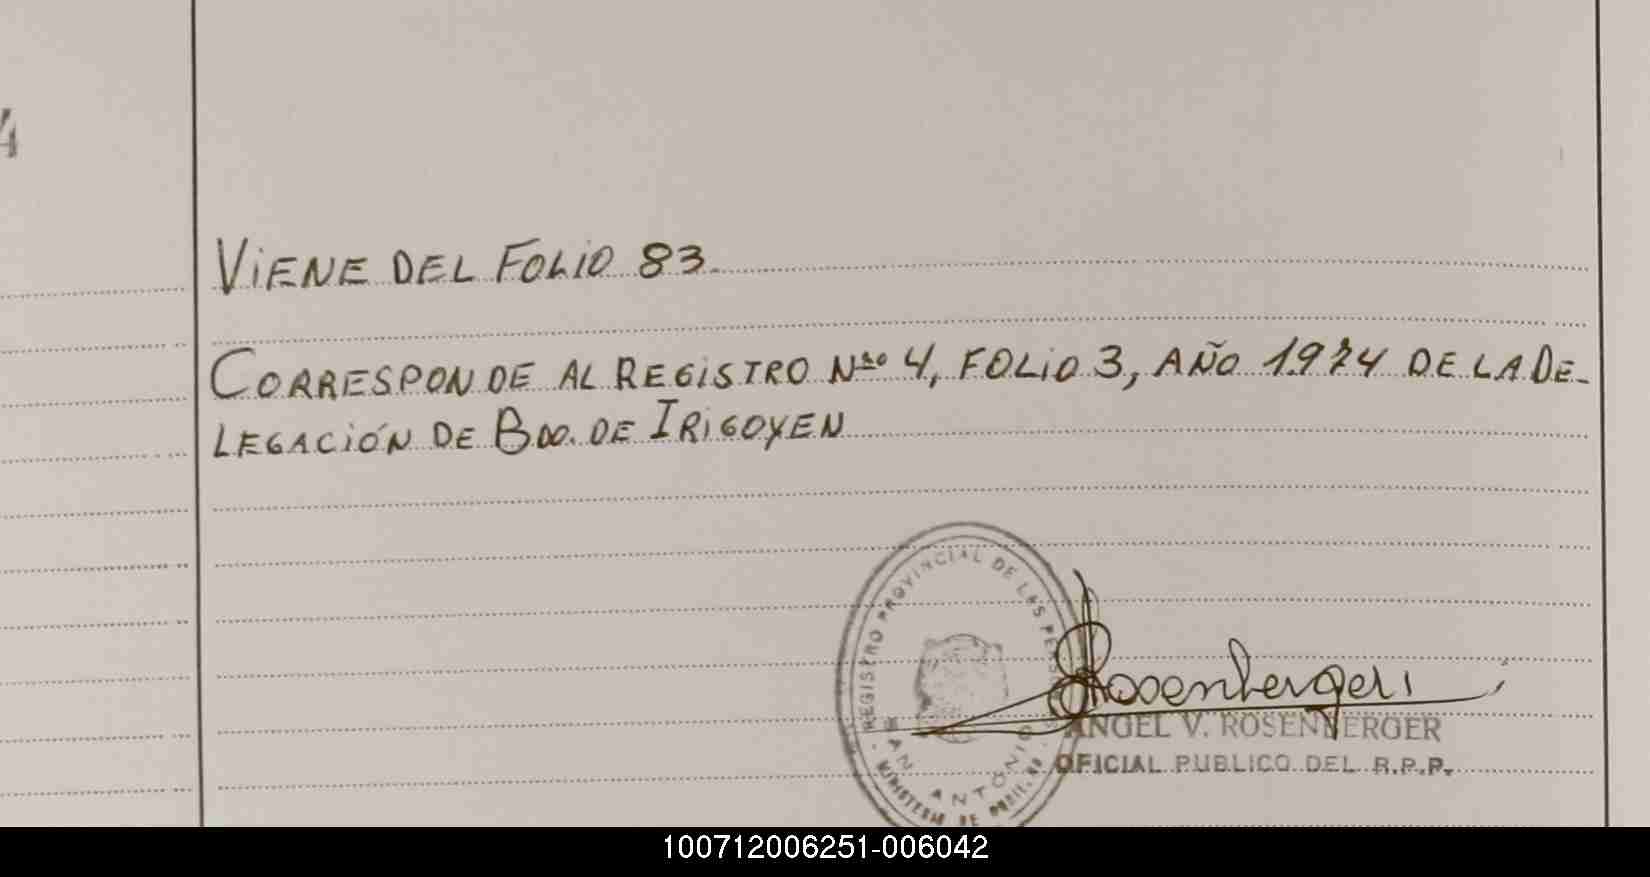 4
VIENE DEL FOLIO 83.
CORRESPONDE AL REGISTRO Nro 4, FOLIO 3, AÑO 1.974 DE LA DE-
LEGACIÓN DE Bdo. DE IRIGOYEN
REGISTRO PROVINCIAL DE LAS PERS
SAN ANTONIO
MINISTERIO DE
Rosenberger
ANGEL V. ROSENBERGER
OFICIAL PUBLICO DEL R.P.P.
100712006251-006042